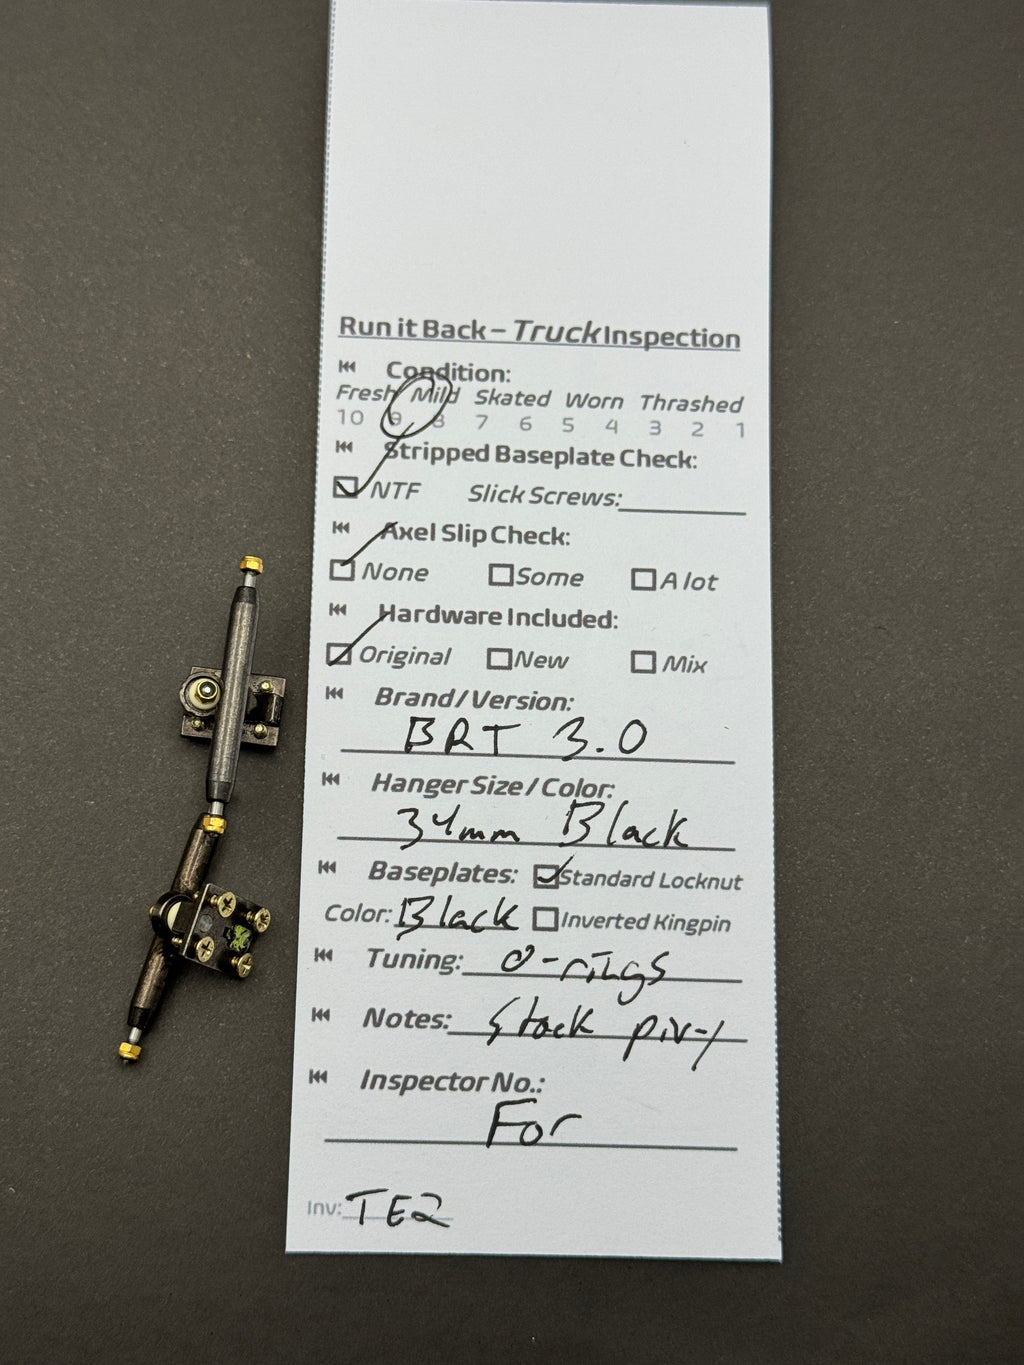 Run it Back – Truck Inspection
Condition:
Fresh Mild Skated Worn Thrashed
10 9 8 7 6 5 4 3 2 1
Stripped Baseplate Check:
NTF Slick Screws:
Axel Slip Check:
None Some A lot
Hardware Included:
Original New Mix
Brand/Version:
BRT 3.0
Hanger Size/Color:
34mm Black
Baseplates: Standard Locknut
Color: Black Inverted Kingpin
Tuning: O-rings
Notes: Stock
Inspector No.:
For
Inv: TE2